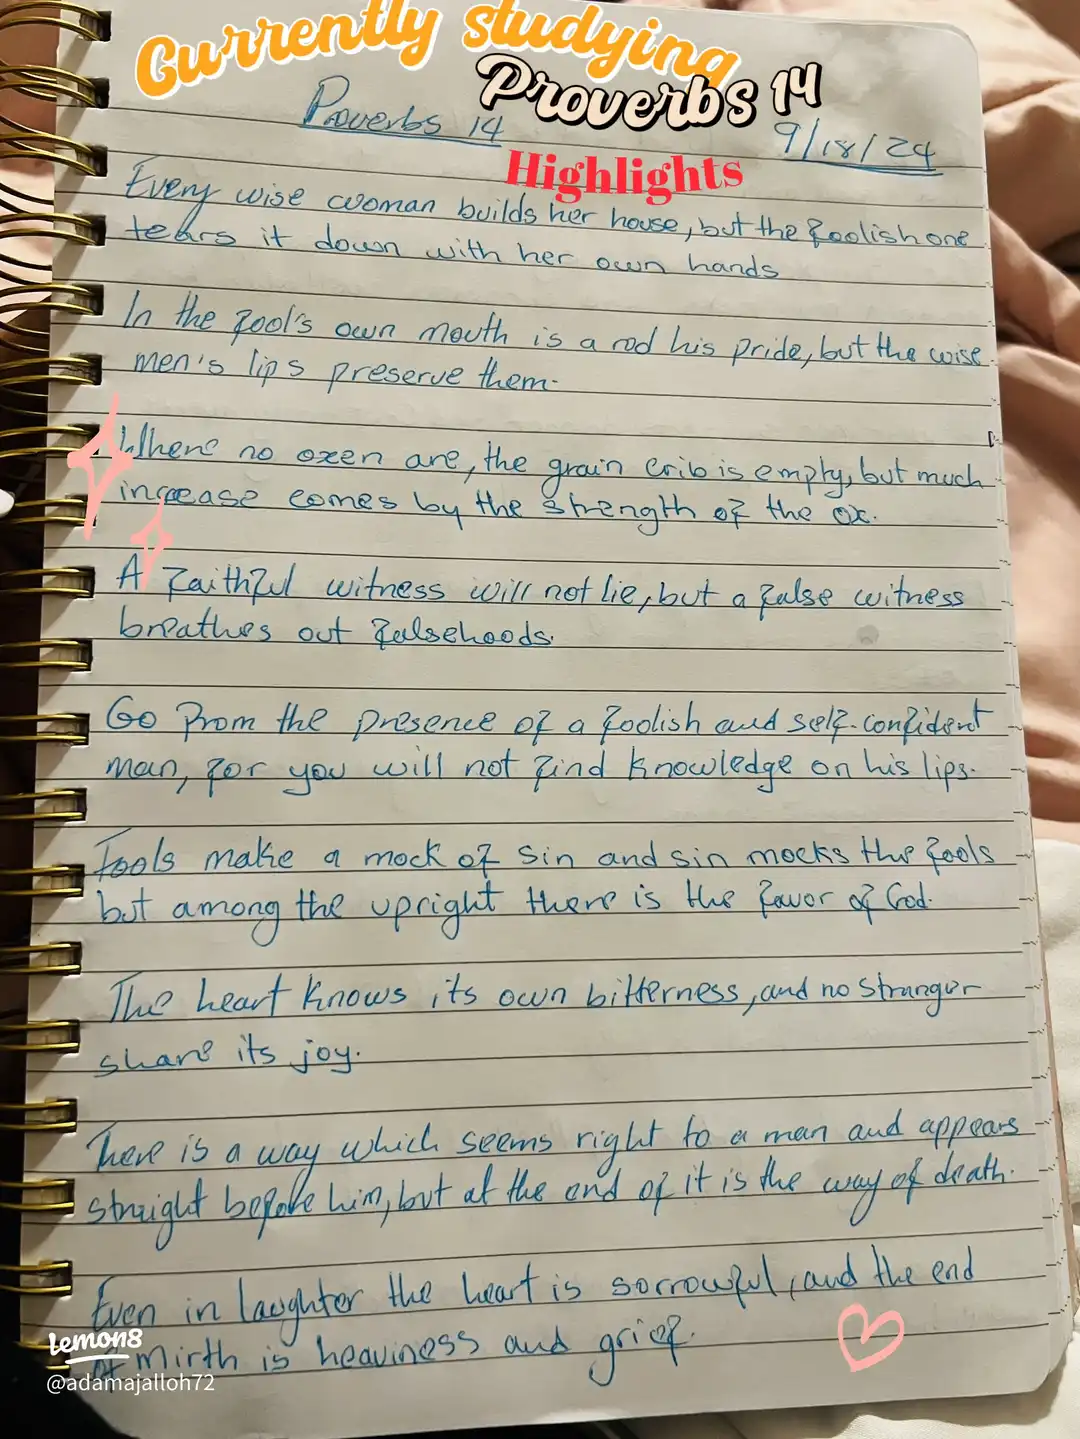 Currently studying
Proverbs 14
Proverbs 14
9/18/24
Highlights
Every wise woman builds her house, but the foolish one
tears it down with her own hands
In the fool's own mouth is a rod his pride, but the wise
men's lips preserve them.
Where no oxen are, the grain crib is empty, but much
increase comes by the strength of the ox.
A faithful witness will not lie, but a false witness
breathes out falsehoods.
Go from the presence of a foolish and self-confident
man, for you will not find knowledge on his lips.
Fools make a mock of sin and sin mocks the fools
but among the upright there is the favor of God.
The heart knows its own bitterness, and no stranger
share its joy.
There is a way which seems right to a man and appears
straight before him, but at the end of it is the way of death.
Even in laughter the heart is sorrowful, and the end
of mirth is heaviness and grief.
lemon8
@adamajalloh72